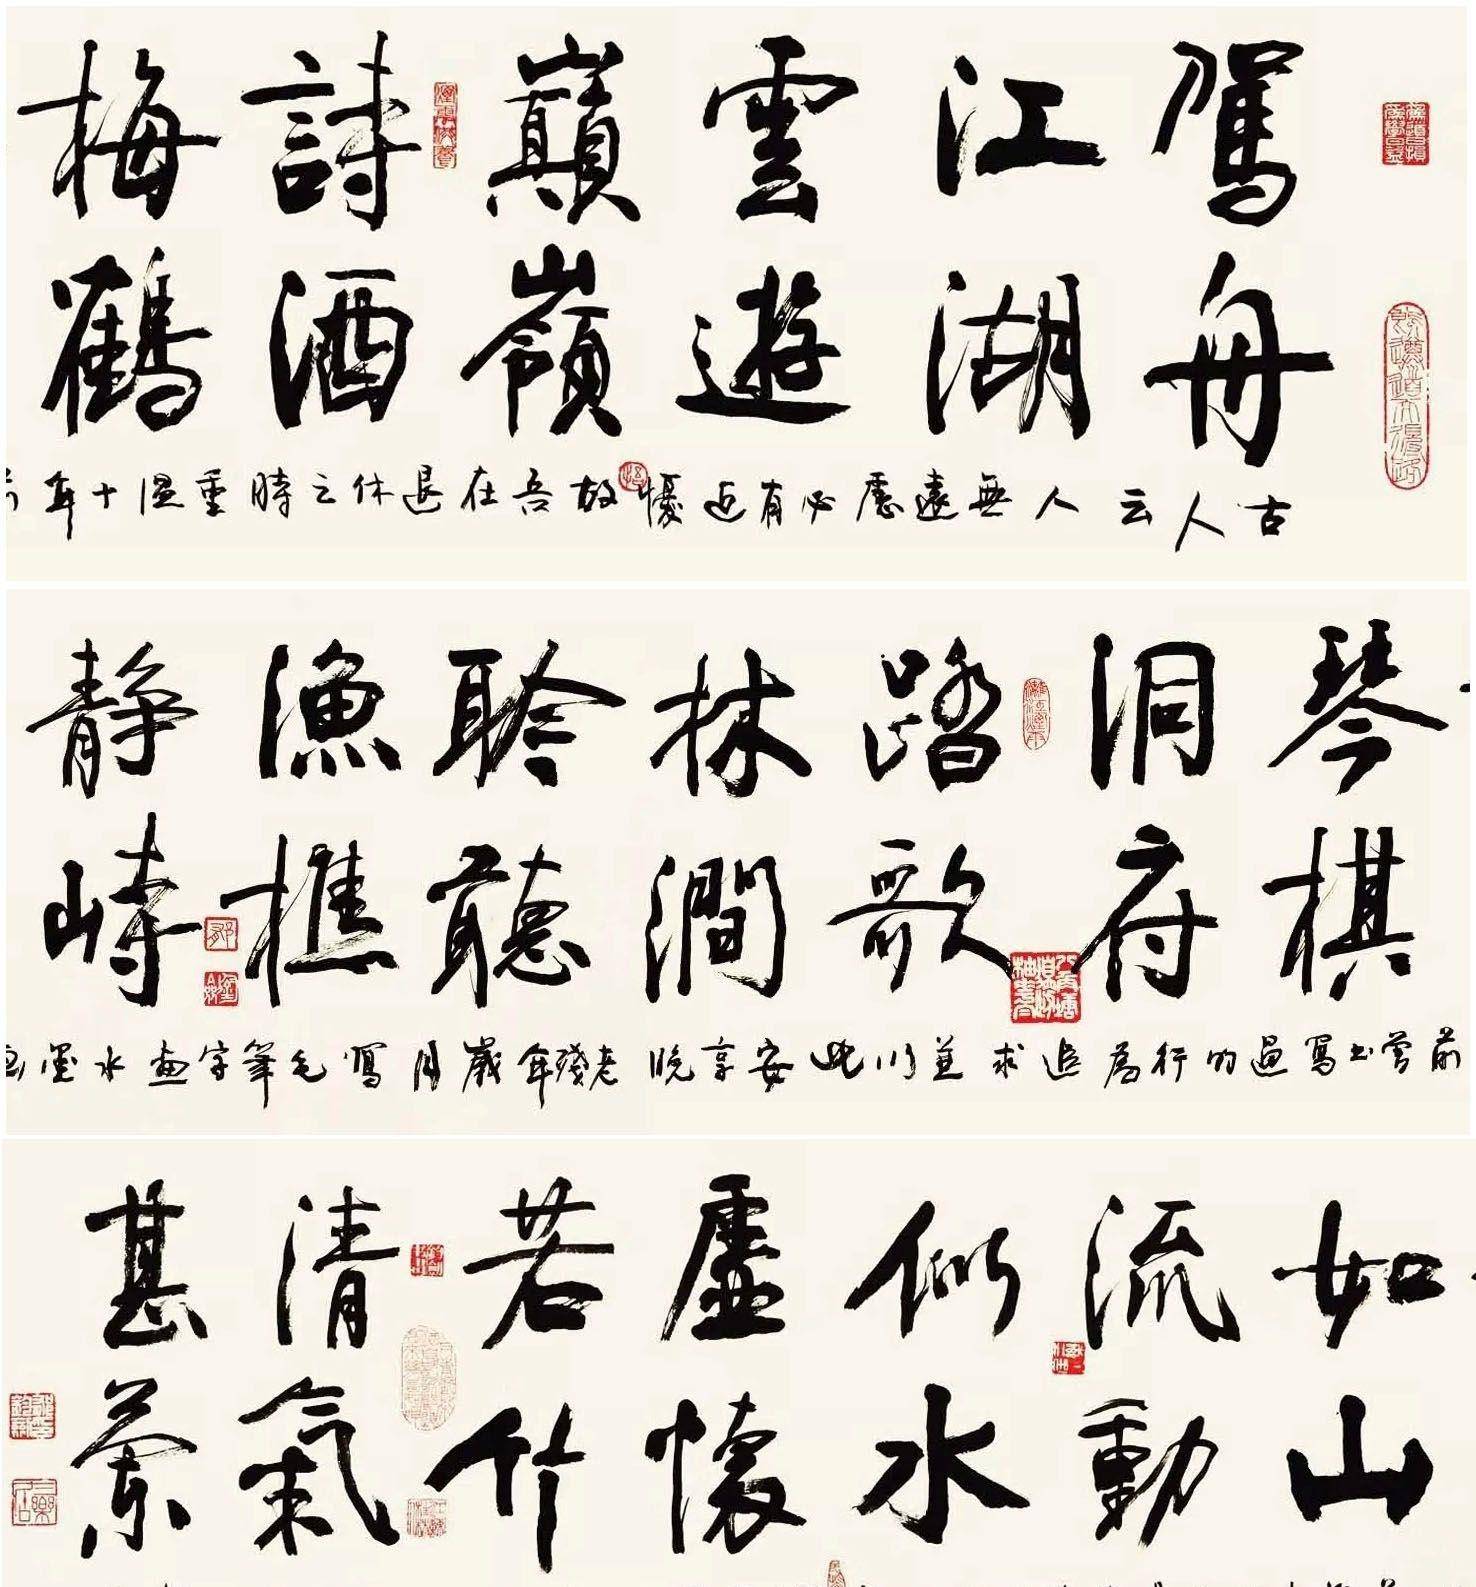 駕舟
江湖
雲遊
巔嶺
詩酒
梅鶴
古人云人無遠慮必有近懮故吾在退休之時重溫十年
琴棋
洞府
踏歌
林澗
聆聽
漁樵
静峙
前曾书寫過的行為追求並以此安享晚老殘年歲月寫毛筆字畫水墨
如山
流動
似水
虛懷
若竹
清氣
甚蘭